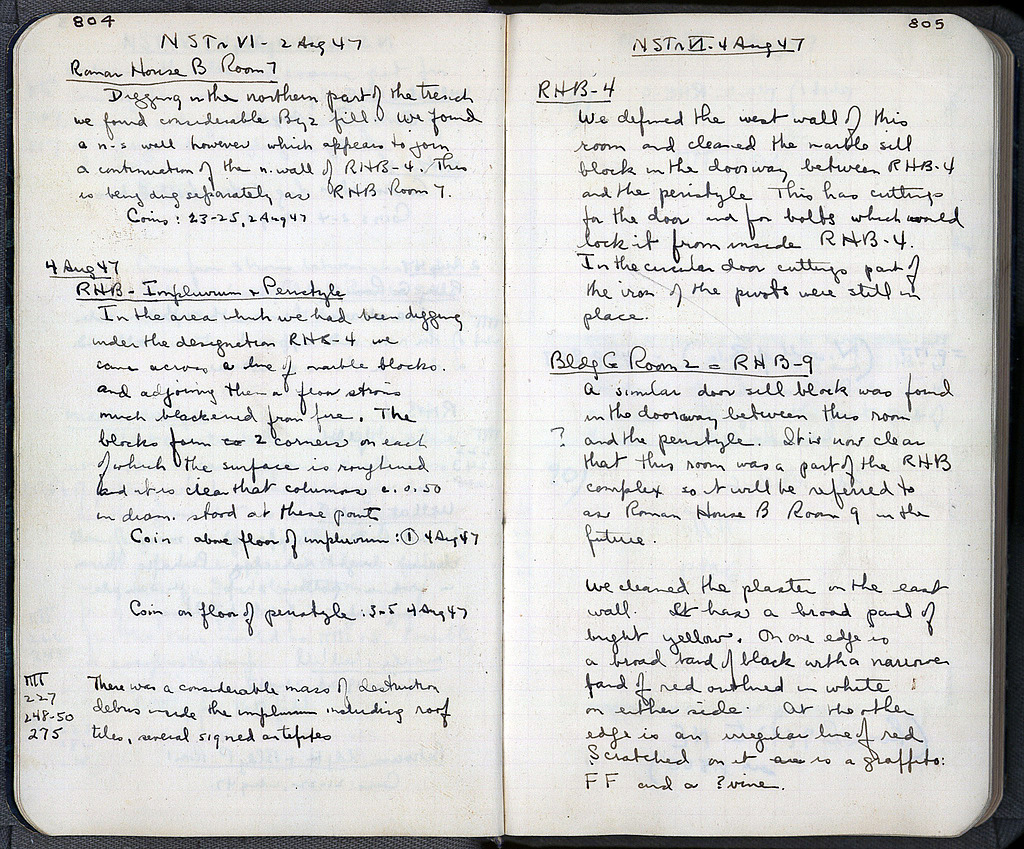 804
N S Tr VI - 2 Aug 47
Roman House B Room 7
Digging in the northern part of the trench
we found considerable Byz fill. We found
a n-s wall however which appears to join
a continuation of the n. wall of RHB-4. This
is being dug separately as RHB Room 7.
Coins: 23-25, 2 Aug 47
4 Aug 47
RHB - Impluvium & Peristyle
In the area which we had been digging
under the designation RHB-4 we
came across a line of marble blocks
and adjoining them a floor
much blackened from fire. The
blocks form 2 corners on each
of which the surface is roughened
and it is clear that columns c. 0.50
in diam. stood at these points
Coin above floor of impluvium: ① 4 Aug 47
Coin on floor of peristyle: 3-5 4 Aug 47
MT
227
248-50
275
There was a considerable mass of destruction
debris inside the impluvium including roof
tiles, several signed antefixes
805
N S Tr VI - 4 Aug 47
RHB-4
We defined the west wall of this
room and cleaned the marble sill
block in the doorway between RHB-4
and the peristyle. This has cuttings
for the door and for bolts which would
lock it from inside RHB-4.
In the circular door cuttings part of
the iron of the pivots were still in
place.
Bldg G Room 2 = RHB-9
A similar door sill block was found
in the doorway between this room
? and the peristyle. It is now clear
that this room was a part of the RHB
complex so it will be referred to
as Roman House B Room 9 in the
future.
We cleaned the plaster on the east
wall. It has a broad panel of
bright yellow. On one edge is
a broad band of black with a narrower
band of red outlined in white
on either side. At the other
edge is an irregular line of red
Scratched on it is a graffito:
F F and a ? vine.